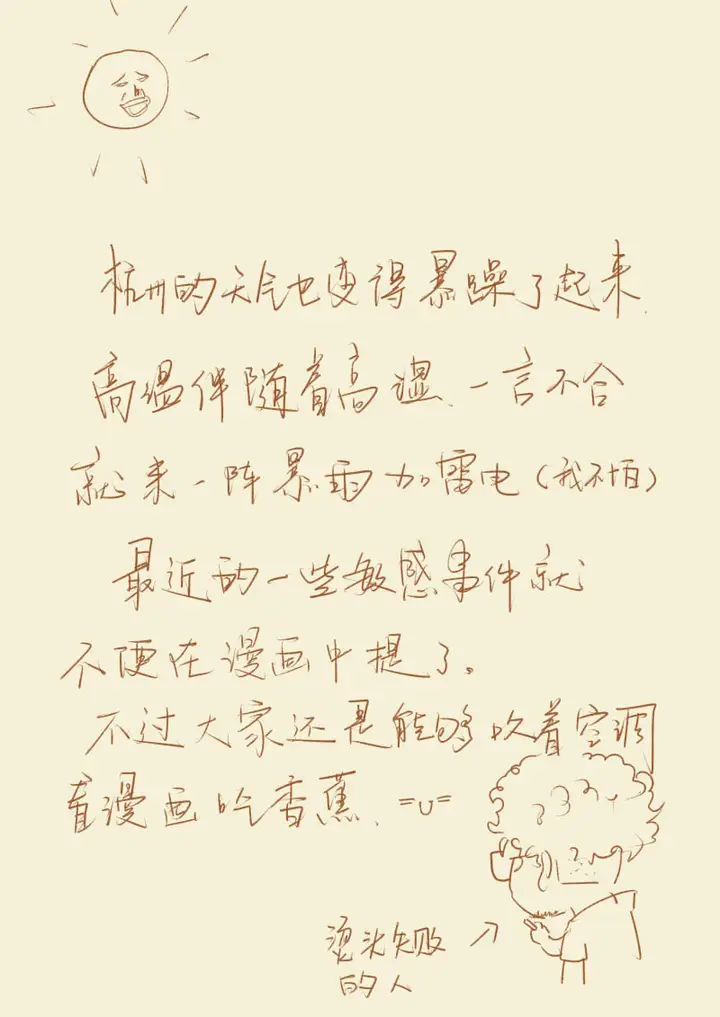 杭州的天气也变得暴躁了起来.
高温伴随着高湿、一言不合
就来一阵暴雨加雷电（我不怕）
最近的一些敏感事件就
不便在漫画中提了。
不过大家还是能够吹着空调
看漫画吃香蕉、=u=
烫头失败
的人